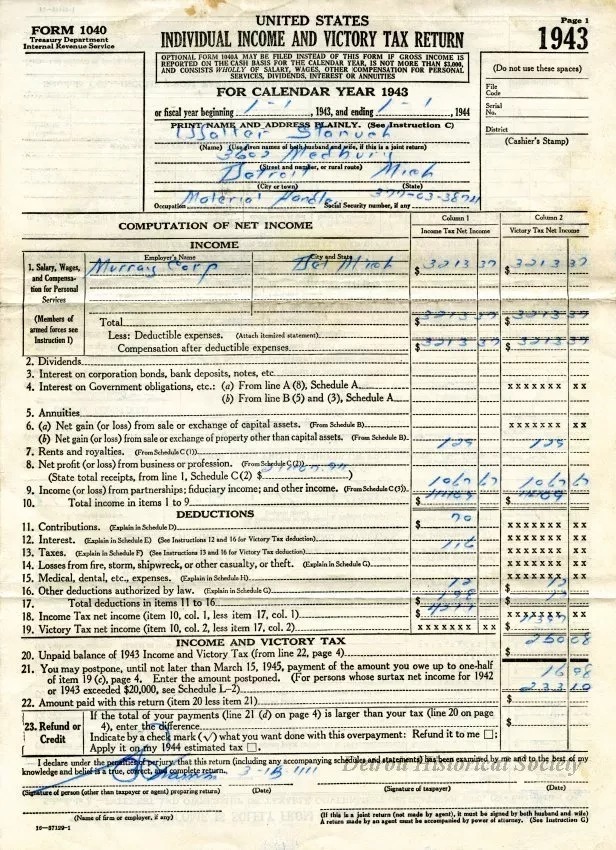 FORM 1040
Treasury Department
Internal Revenue Service
UNITED STATES
INDIVIDUAL INCOME AND VICTORY TAX RETURN
OPTIONAL FORM 1040A MAY BE FILED INSTEAD OF THIS FORM IF GROSS INCOME IS
REPORTED ON THE CASH BASIS FOR THE CALENDAR YEAR, IS NOT MORE THAN $3,000,
AND CONSISTS WHOLLY OF SALARY, WAGES, OTHER COMPENSATION FOR PERSONAL
SERVICES, DIVIDENDS, INTEREST OR ANNUITIES
Page 1
1943
(Do not use these spaces)
File
Code
Serial
No.
District
(Cashier's Stamp)
FOR CALENDAR YEAR 1943
or fiscal year beginning 1-1, 1943, and ending 1-1, 1944
PRINT NAME AND ADDRESS PLAINLY. (See Instruction C)
Walter
(Name) (Use given names of both husband and wife, if this is a joint return)
3603 Medbury
(Street and number, or rural route)
Detroit Mich
(City or town) (State)
Occupation Material Handler Social Security number, if any
COMPUTATION OF NET INCOME
Column 1
Income Tax Net Income
Column 2
Victory Tax Net Income
INCOME
1. Salary, Wages, and Compensation for Personal Services
Employer's Name City and State
Murray Corp Det Mich $ 3213 37 $ 3213 37
(Members of armed forces see Instruction I)
Total $ 3213 37 $ 3213 37
Less: Deductible expenses. (Attach itemized statement)
Compensation after deductible expenses $ 3213 37 $ 3213 37
2. Dividends
3. Interest on corporation bonds, bank deposits, notes, etc
4. Interest on Government obligations, etc.: (a) From line A (8), Schedule A xxxxxxx xx
(b) From line B (5) and (3), Schedule A
5. Annuities
6. (a) Net gain (or loss) from sale or exchange of capital assets. (From Schedule B) xxxxxxx xx
(b) Net gain (or loss) from sale or exchange of property other than capital assets. (From Schedule B)
7. Rents and royalties. (From Schedule C (1)) 129 129
8. Net profit (or loss) from business or profession. (From Schedule C (2))
(State total receipts, from line 1, Schedule C (2) $ )
1067 67 1067 67
9. Income (or loss) from partnerships; fiduciary income; and other income. (From Schedule C (3))
10. Total income in items 1 to 9 $ $
DEDUCTIONS
11. Contributions. (Explain in Schedule D) $ 70 xxxxxxx xx
12. Interest. (Explain in Schedule E) (See Instructions 12 and 16 for Victory Tax deduction) xxxxxxx xx
13. Taxes. (Explain in Schedule F) (See Instructions 13 and 16 for Victory Tax deduction) 116 xxxxxxx xx
14. Losses from fire, storm, shipwreck, or other casualty, or theft. (Explain in Schedule G) xxxxxxx xx
15. Medical, dental, etc., expenses. (Explain in Schedule H) xxxxxxx xx
16. Other deductions authorized by law. (Explain in Schedule G) 12 12
17. Total deductions in items 11 to 16 $ 198 $ 12
18. Income Tax net income (item 10, col. 1, less item 17, col. 1) $ xxxxxxx xx
19. Victory Tax net income (item 10, col. 2, less item 17, col. 2) xxxxxxx xx $
INCOME AND VICTORY TAX
20. Unpaid balance of 1943 Income and Victory Tax (from line 22, page 4) $ 250 08
21. You may postpone, until not later than March 15, 1945, payment of the amount you owe up to one-half
of item 19 (c), page 4. Enter the amount postponed. (For persons whose surtax net income for 1942
or 1943 exceeded $20,000, see Schedule L-2) 16 98
22. Amount paid with this return (item 20 less item 21) $ 233 10
23. Refund or Credit
If the total of your payments (line 21 (d) on page 4) is larger than your tax (line 20 on page
4), enter the difference $
Indicate by a check mark (√) what you want done with this overpayment: Refund it to me □;
Apply it on my 1944 estimated tax □.
I declare under the penalties of perjury that this return (including any accompanying schedules and statements) has been examined by me and to the best of my
knowledge and belief is a true, correct, and complete return.
Detroit Historical Society
(Signature of person (other than taxpayer or agent) preparing return) (Date) (Signature of taxpayer) (Date)
(Name of firm or employer, if any)
(If this is a joint return (not made by agent), it must be signed by both husband and wife)
A return made by an agent must be accompanied by power of attorney. (See Instruction G)
16—37129-1